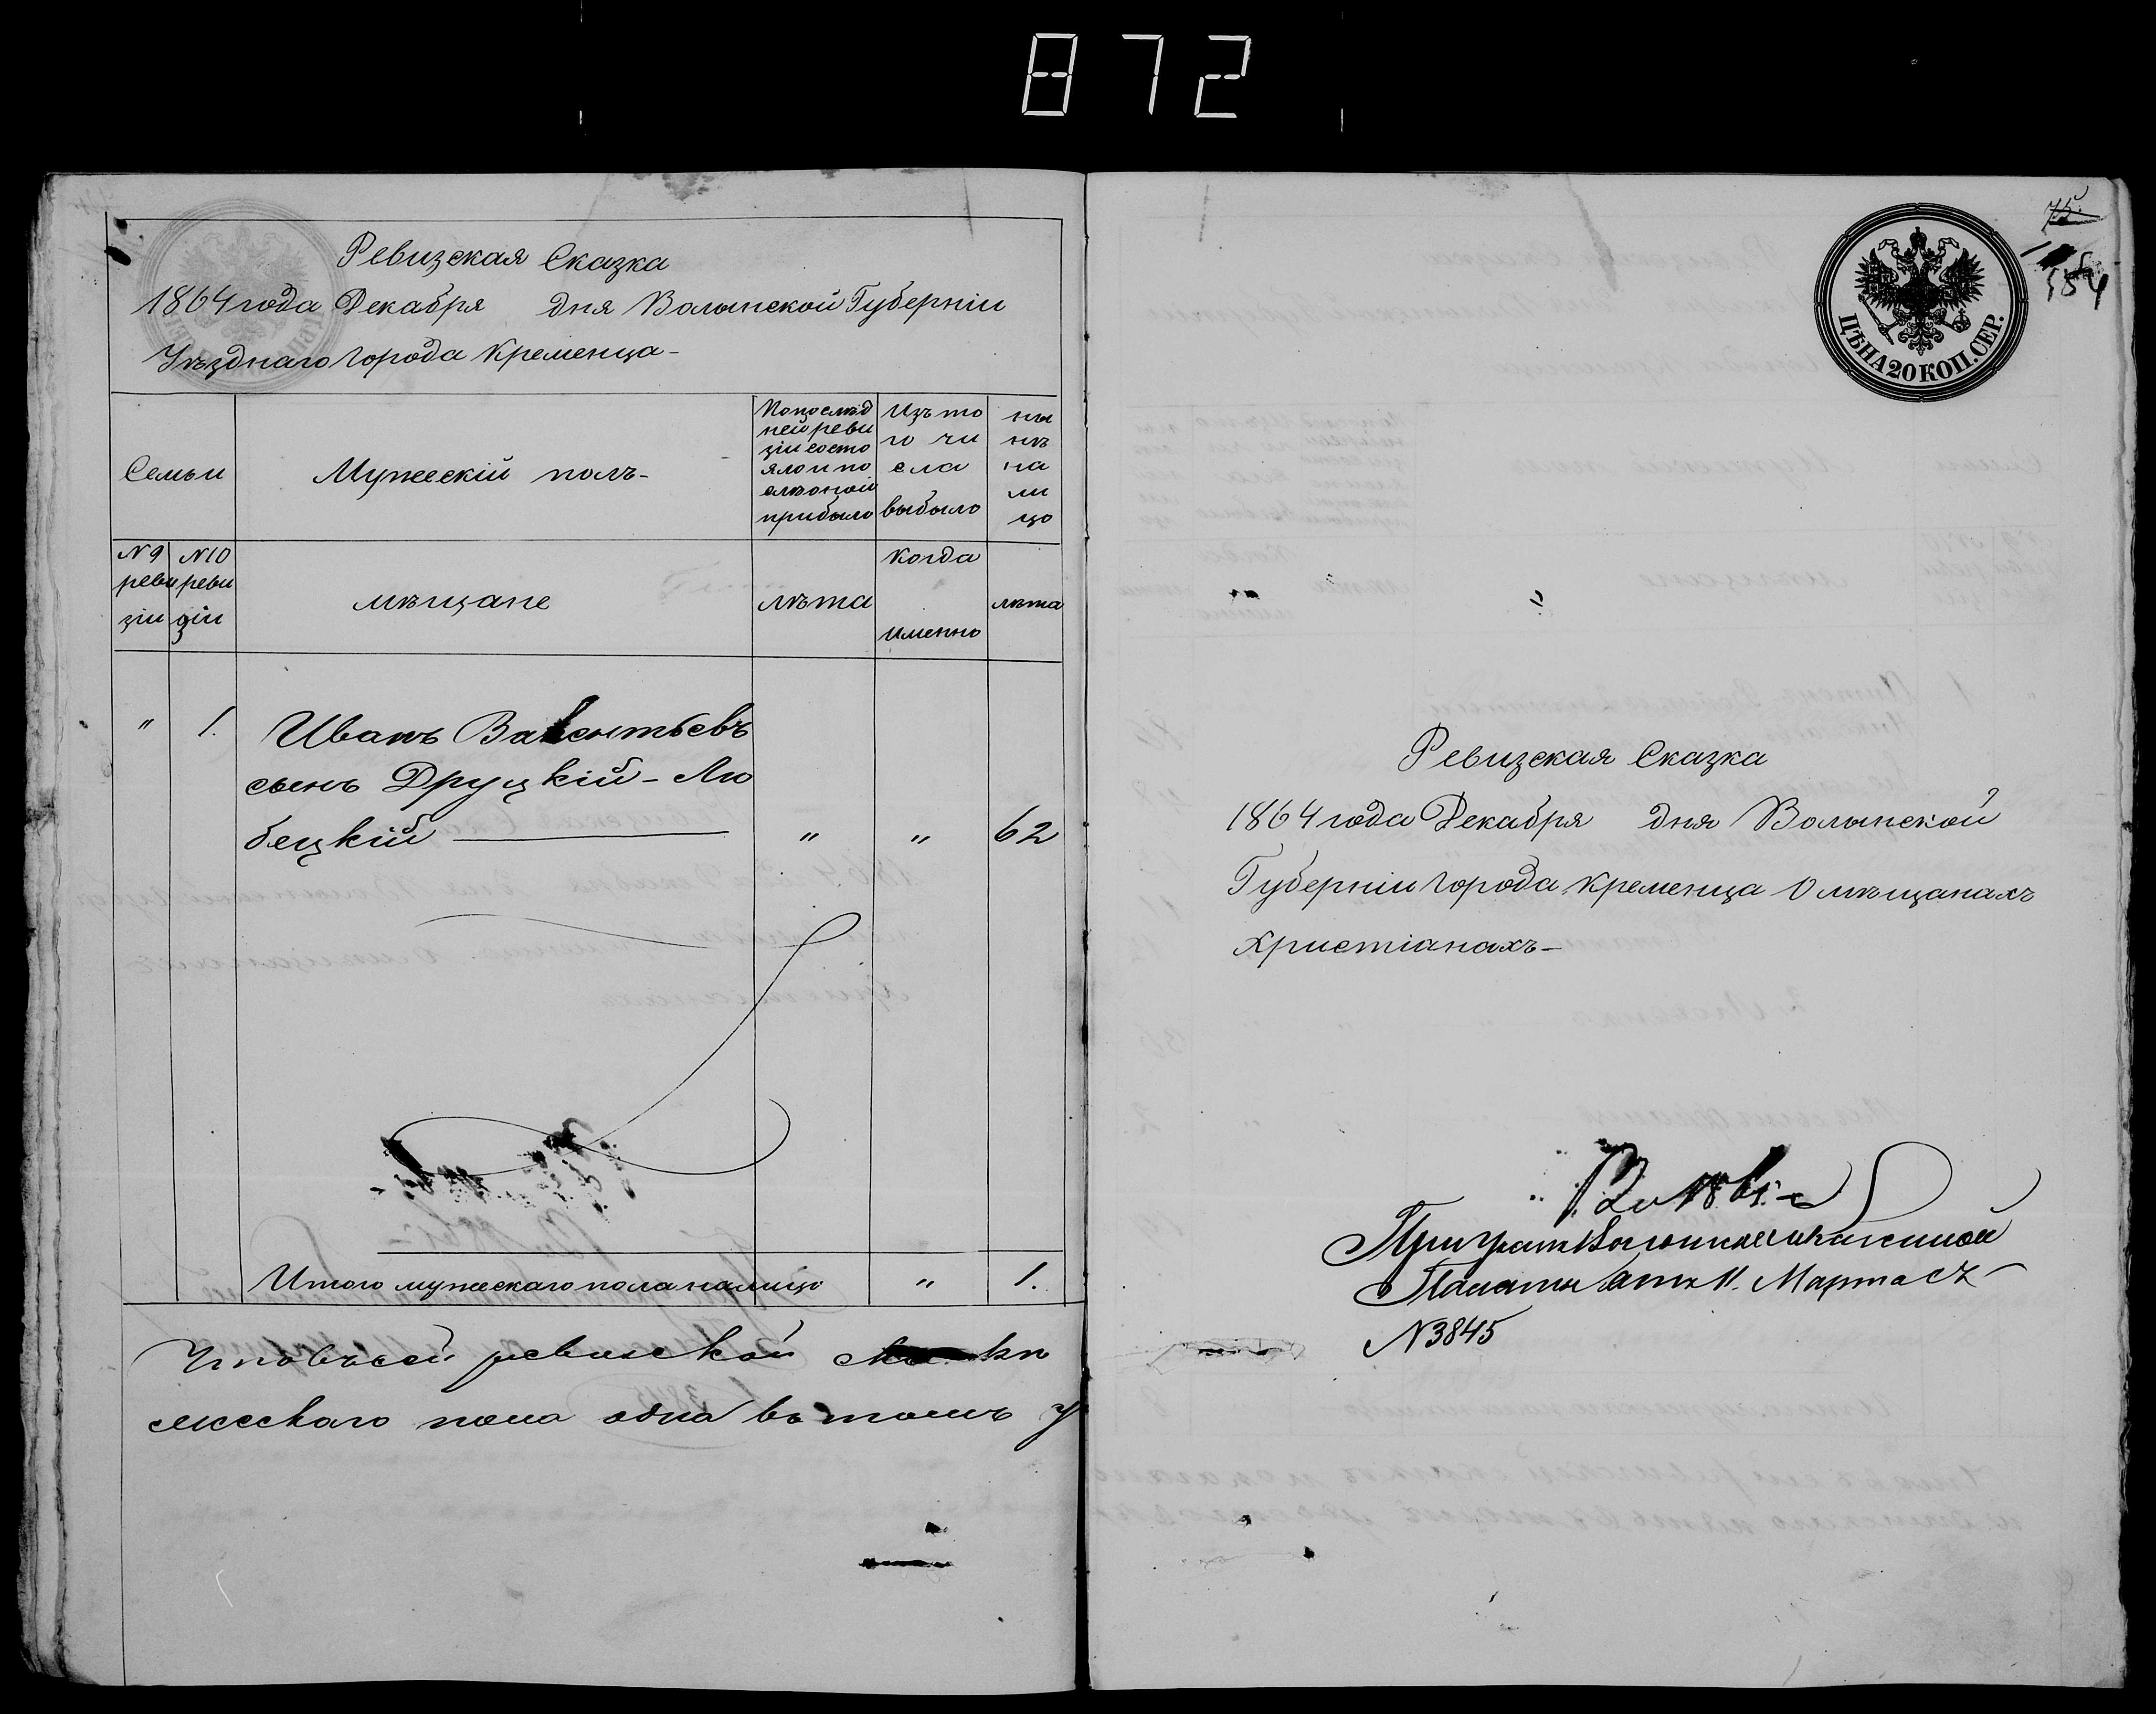 872
Ревизская Сказка
1864 года Декабря дня Волынской Губерніи
Уѣзднаго города Кременца-
Семьи
Мужескій полъ-
Попослѣд
ней реви
зіи состо
яло и по
оной
прибыло
Изъ то
го чи
сла
выбыло
ны
нѣ
на
ли
цо
N 9
реви
зіи
N 10
реви
зіи
мѣщане
лѣта
когда
именно
лѣта
" 1. Иванъ Валентьевъ
сынъ Друцкій-Лю
бецкій " " 62
Итого мужескаго пола налицо " 1.
Что въ сей ревизской
мужескаго пола одна въ томъ
75.
154
ЦѢНА 20 КОП. СЕР.
Ревизская Сказка
1864 года Декабря дня Волынской
Губерніи города Кременца О мѣщанахъ
христіанахъ-
При указѣ Волынской казенной
Палаты отъ 11. Марта съ
N 3845